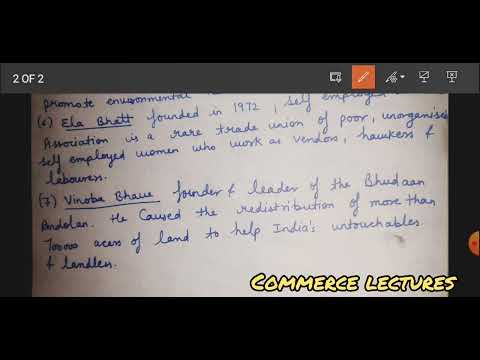 2 OF 2
promote environmental
(6) Ela Bhatt founded in 1972, self employed
Association is a rare trade union of poor, unorganised
self employed women who work as vendors, hawkess &
labouress.
(7) Vinoba Bhave founder & leader of the Bhudaan
Andolan. He Caused the redistribution of more than
acess of land to help India's untouchables
& landless.
COMMERCE LECTURES